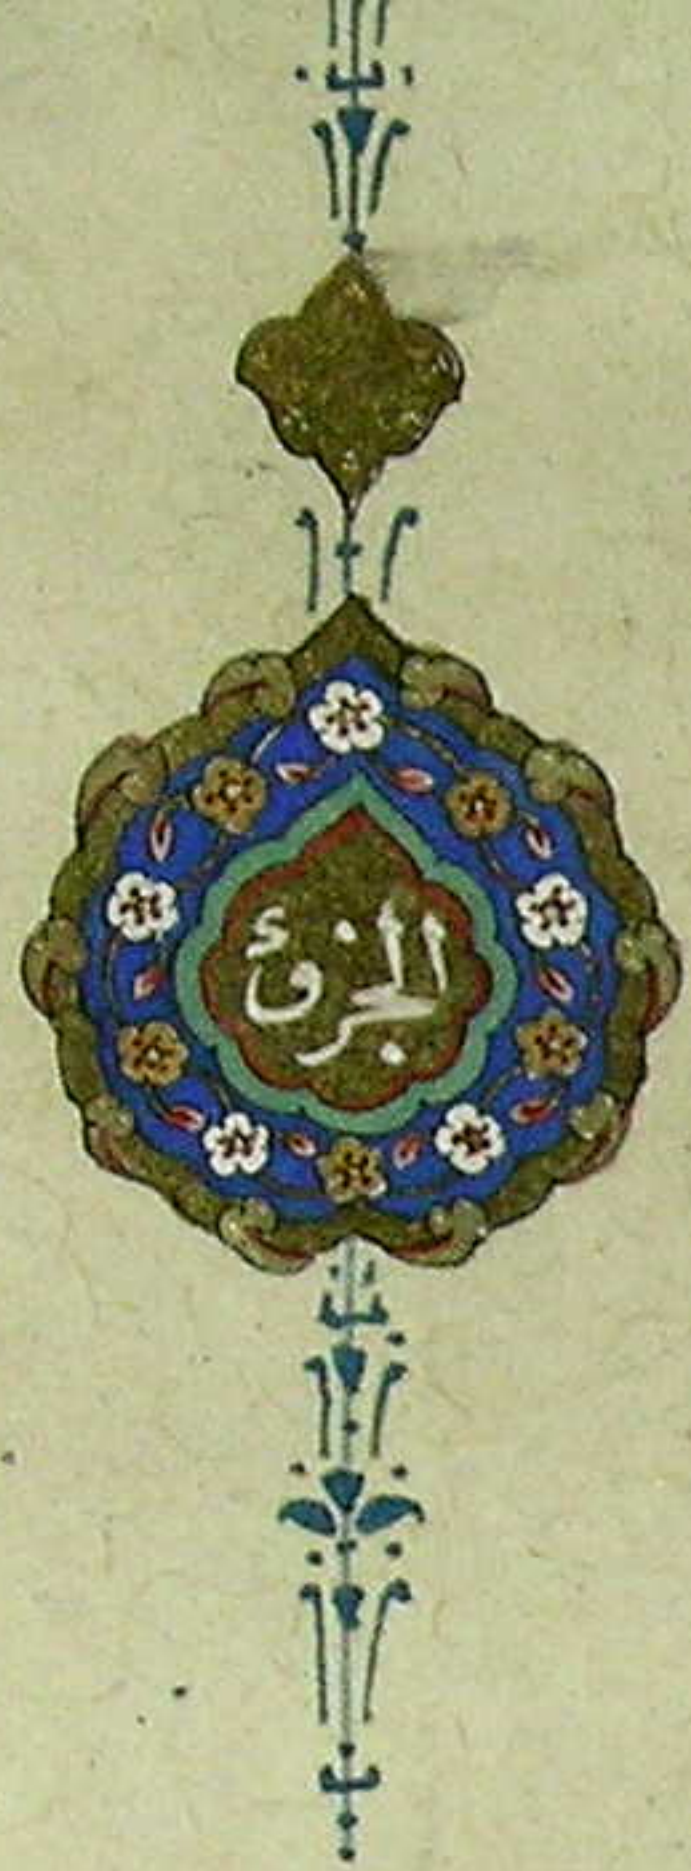 الجزؤ